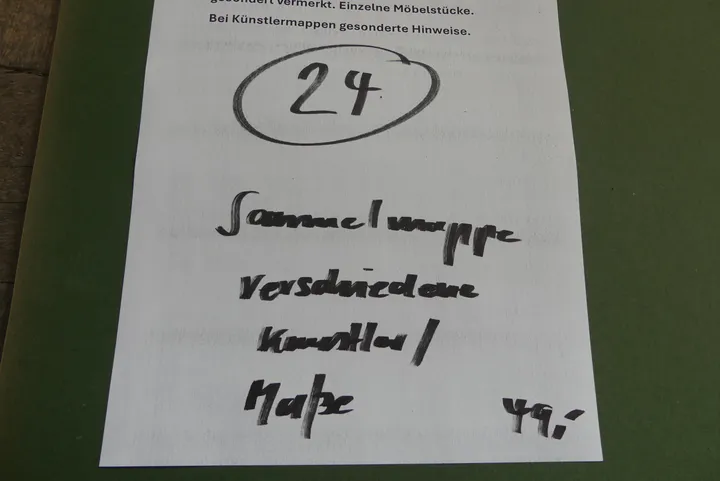 gesondert vermerkt. Einzelne Möbelstücke.
Bei Künstlermappen gesonderte Hinweise.
24
Sammelmappe
verschiedene
Künstler/
Maße 49,-